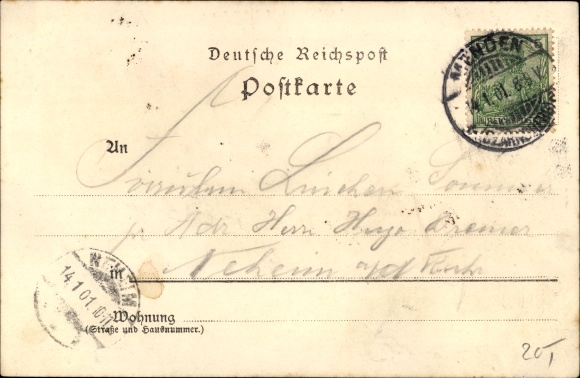 Deutsche Reichspost
Postkarte
MENDEN
14.1.01. 8-9 V.
An
Fräulein Linchen Sommer
p. Adr. Herr Hugo Bremer
in Neheim a/d Ruhr
NEHEIM
14.1.01. 10-11
Wohnung
(Straße und Hausnummer.)
20,-